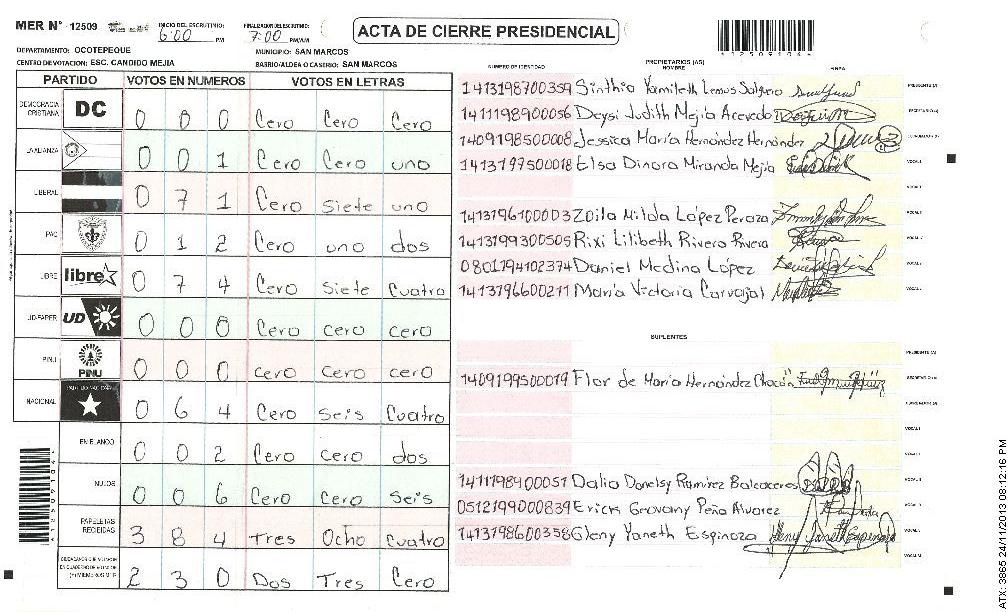 MER N° 12509
INICIO DEL ESCRUTINIO: 6:00 PM
FINALIZACION DEL ESCRUTINIO: 7:00 PM/AM
ACTA DE CIERRE PRESIDENCIAL
DEPARTAMENTO: OCOTEPEQUE
MUNICIPIO: SAN MARCOS
CENTRO DE VOTACION: ESC. CANDIDO MEJIA
BARRIO/ALDEA O CASERIO: SAN MARCOS
PARTIDO VOTOS EN NUMEROS VOTOS EN LETRAS
DEMOCRACIA CRISTIANA DC 0 0 0 Cero Cero Cero
LA ALIANZA 0 0 1 Cero Cero uno
LIBERAL 0 7 1 Cero Siete uno
PAC 0 1 2 Cero uno dos
LIBRE libre 0 7 4 Cero Siete Cuatro
UD-FAPER UD 0 0 0 Cero cero cero
PINU PINU 0 0 0 cero cero cero
NACIONAL PARTIDO NACIONAL 0 6 4 Cero Seis Cuatro
EN BLANCO 0 0 2 Cero Cero dos
NULOS 0 0 6 Cero Cero Seis
PAPELETAS RECIBIDAS 3 8 4 Tres Ocho Cuatro
2 3 0 Dos Tres Cero
NUMERO DE IDENTIDAD
PROPIETARIOS (AS)
NOMBRE
FIRMA
1413198700359 Sinthia Yamileth Lemus Salguero PRESIDENTE (A)
1411198900056 Deysi Judith Mejia Acevedo SECRETARIO (A)
1409198500008 Jessica María Hernández Hernández
1413197500018 Elsa Dinora Miranda Mejia VOCAL I
1413196100003 Zoila Nilda López Peraza
1413199300505 Rixi Lilibeth Rivera Rivera
0801194102374 Daniel Medina López
1413196600211 María Victoria Carvajal
SUPLENTES
PRESIDENTE (A)
1409199500019 Flor de María Hernández Chacón SECRETARIO (A)
ESCRUTADOR (A)
VOCAL I
1411198900051 Dalia Donelsy Ramirez Balcaceres
0512199000839 Erick Geovany Peña Alvarez
1413198600358 Gleny Yaneth Espinoza
12509104
ATX: 3865 24/11/2013 08:12:16 PM